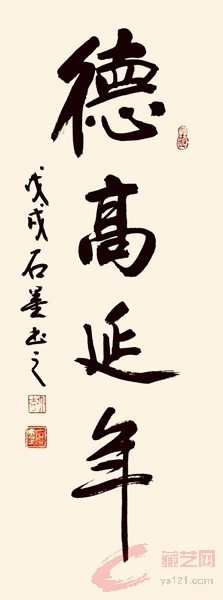 德高延年
戊戌石墨书之
藏艺网
ys121.com